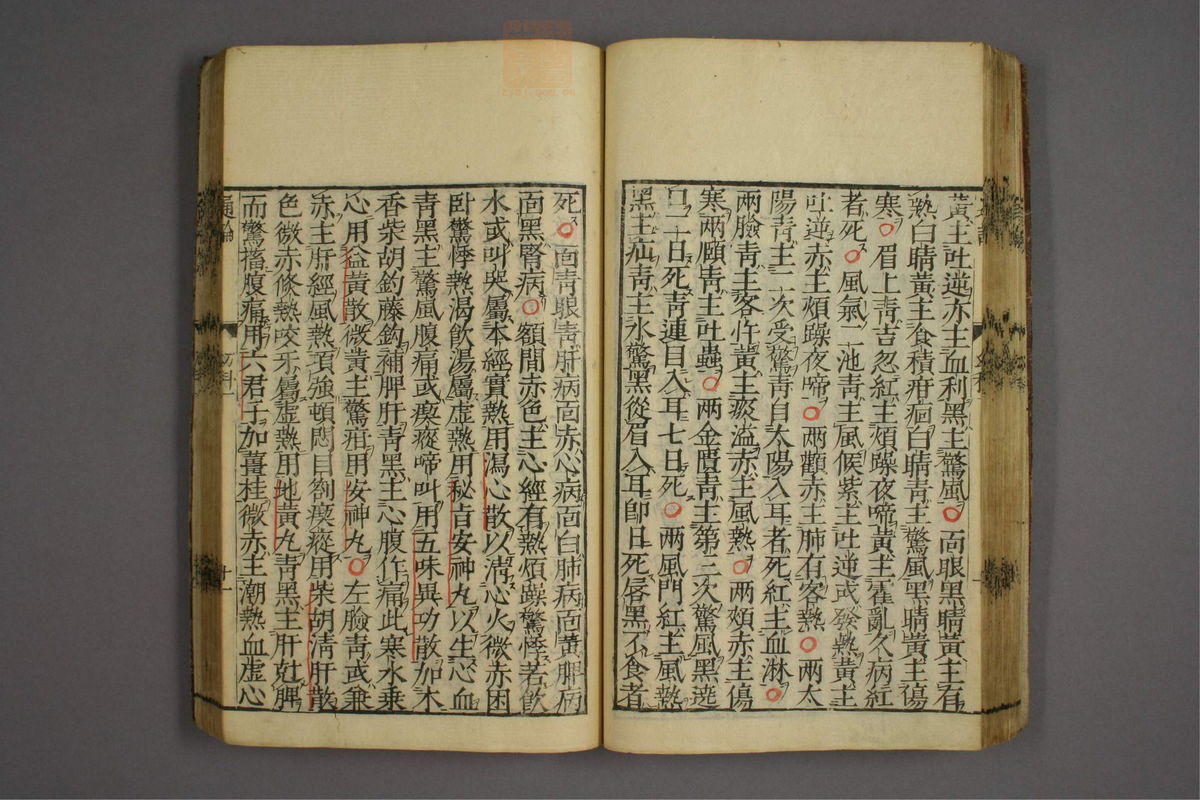 黃主吐逆赤主血利黑主驚風○面眼黑睛黃主有
熱白睛黃主食積疳痼白睛青主驚風黑睛黃主傷
寒○眉上青吉忽紅主煩躁夜啼黃主霍亂久病紅
者死○風氣二池青主風候紫主吐逆或發熱黃主
吐逆赤主煩躁夜啼○兩顴赤主肺有客熱○兩太
陽青主二次受驚青自太陽入耳者死紅主血淋○
兩臉青主客忤黃主痰溢赤主風熱○兩頰赤主傷
寒兩頤青主吐蟲○兩金匱青主第三次驚風黑遶
口二日死青連目入耳七日死○兩風門紅主風熱
黑主疝青主水驚黑從眉入耳卽日死唇黑不食者
死○面青眼青肝病面赤心病面白肺病面黃脾病
面黑腎病○額間赤色主心經有熱煩躁驚悸若飮
水或叫哭屬本經實熱用瀉心散以淸心火微赤困
臥驚悸熱渴飮湯屬虛熱用秘旨安神丸以生心血
青黑主驚風腹痛或瘈瘲啼叫用五味異功散加木
香柴胡釣藤鈎補脾肝青黑主心腹作痛此寒水乘
心用益黃散微黃主驚疳用安神丸○左臉青或兼
赤主肝經風熱項強頓悶目劄瘈瘲用柴胡淸肝散
色微赤倏熱咬牙屬虛熱用地黃丸青黑主肝尅脾
而驚搐腹痛用六君子加薑桂微赤主潮熱血虛心
通論
十一